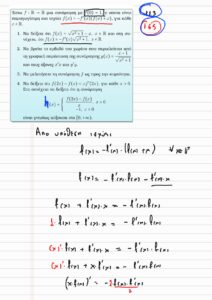 Έστω f : ℝ → ℝ μια συνάρτηση με f(0) = 1, η οποία είναι
παραγωγίσιμη και ισχύει f(x) = −f'(x)(f(x)+x), για κάθε
x ∈ ℝ.
1. Να δείξετε ότι f(x) = √(x²+1) − x, x ∈ ℝ και στη συ-
νέχεια, ότι f(x) = −f'(x)√(x²+1), x ∈ ℝ.
2. Να βρείτε το εμβαδό του χωρίου που περικλείεται από
τη γραφική παράσταση της συνάρτησης
και τους άξονες x'x και y'y.
3. Να μελετήσετε τη συνάρτηση f ως προς την κυρτότητα.
4. Να δείξετε ότι f(2x) − f(x) < xf'(2x), για κάθε x > 0.
Στη συνέχεια να δείξετε ότι η συνάρτηση
είναι γνησίως αύξουσα στο [0, +∞).
Από υπόθεση ισχύει
f(x) = −f'(x)·(f(x)+x)
f(x) = −f'(x)·f(x) − f'(x)·x
f(x) + f'(x)·x = −f'(x)·f(x)
1·f(x) + f'(x)·x = −f'(x)·f(x)
(x)'·f(x) + f'(x)·x = −f'(x)·f(x)
(x)'·f(x) + x·f'(x) = −f'(x)·f(x)